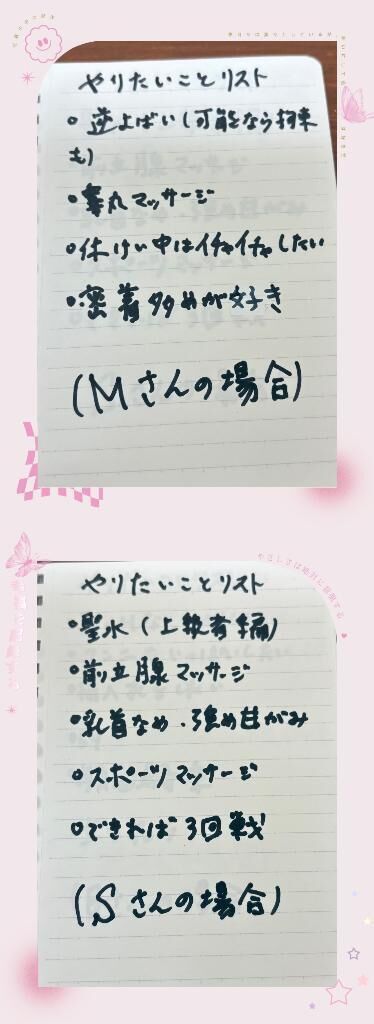 やりたいことリスト
◦ 逆よばい(可能なら拘束
も)
◦睾丸マッサージ
◦休けい中はイチャイチャしたい
◦密着多めが好き
(Mさんの場合)
やりたいことリスト
◦聖水(上級者編)
◦前立腺マッサージ
◦乳首なめ・強め甘がみ
◦スポーツマッサージ
◦できれば3回戦
(Sさんの場合)